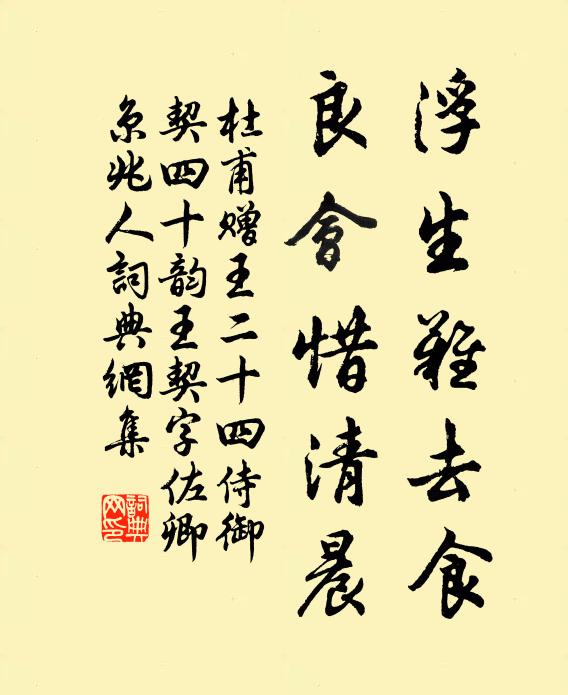 浮生難去食
良會惜清晨
杜甫贈王二十四侍御
契四十韵王契字佐卿
京兆人詞典網集
詞典
网印